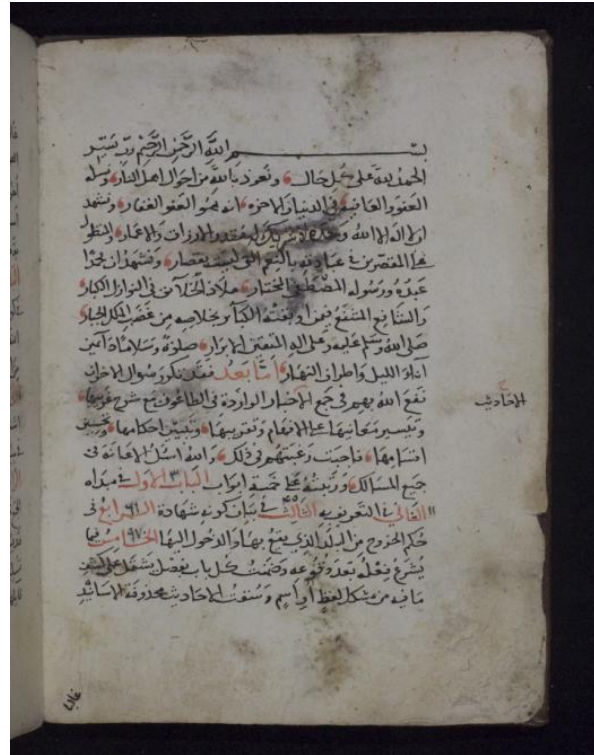 بسم الله الرحمن الرحيم رب يسر
الحمد لله على كل حال ونعوذ بالله من احوال اهل النار ونساله
العفو والعافية في الدنيا والاخره انه هو العفو الغفار ونشهد
ان لا اله الا الله وحده لا شريك له مقدر الارزاق والاعمار
المقصرين في عبادته بالنعم التي ليست بقصار ونشهد ان محمدا
عبده ورسوله المصطفى المختار ملاذ الخلائق في النوازل الكبار
والشافع المشفع فيمن اوبقته الكبائر بخلاصه من غضب الملك الجبار
صلى الله وسلم عليه وعلى اله المتقين الابرار صلوة وسلاما دايمين
آناء الليل واطراف النهار اما بعد فقد تكرر سوال الاخوان
نفع الله بهم في جمع الاخبار الواردة في الطاعون مع شرح غريبها
الاحاديث
وتيسير معانيها على الافهام وتقريبها وتبيين احكامها وتحسين
اقسامها فاجبت رغبتهم في ذلك والله اسئل الاعانة في
جميع المسالك ورتبته على خمسة ابواب الباب الاول في مبداه
الثاني في التعريف به الثالث في بيان كونه شهادة الرابع في
حكم الخروج من البلد الذي يقع بها والدخول اليها الخامس فيما
يشرع فعله بعد وقوعه وختمت كل باب بفصل يشتمل على
ما فيه من مشكل لفظ او اسم وسقت الاحاديث محذوفة الاسانيد
غالبا